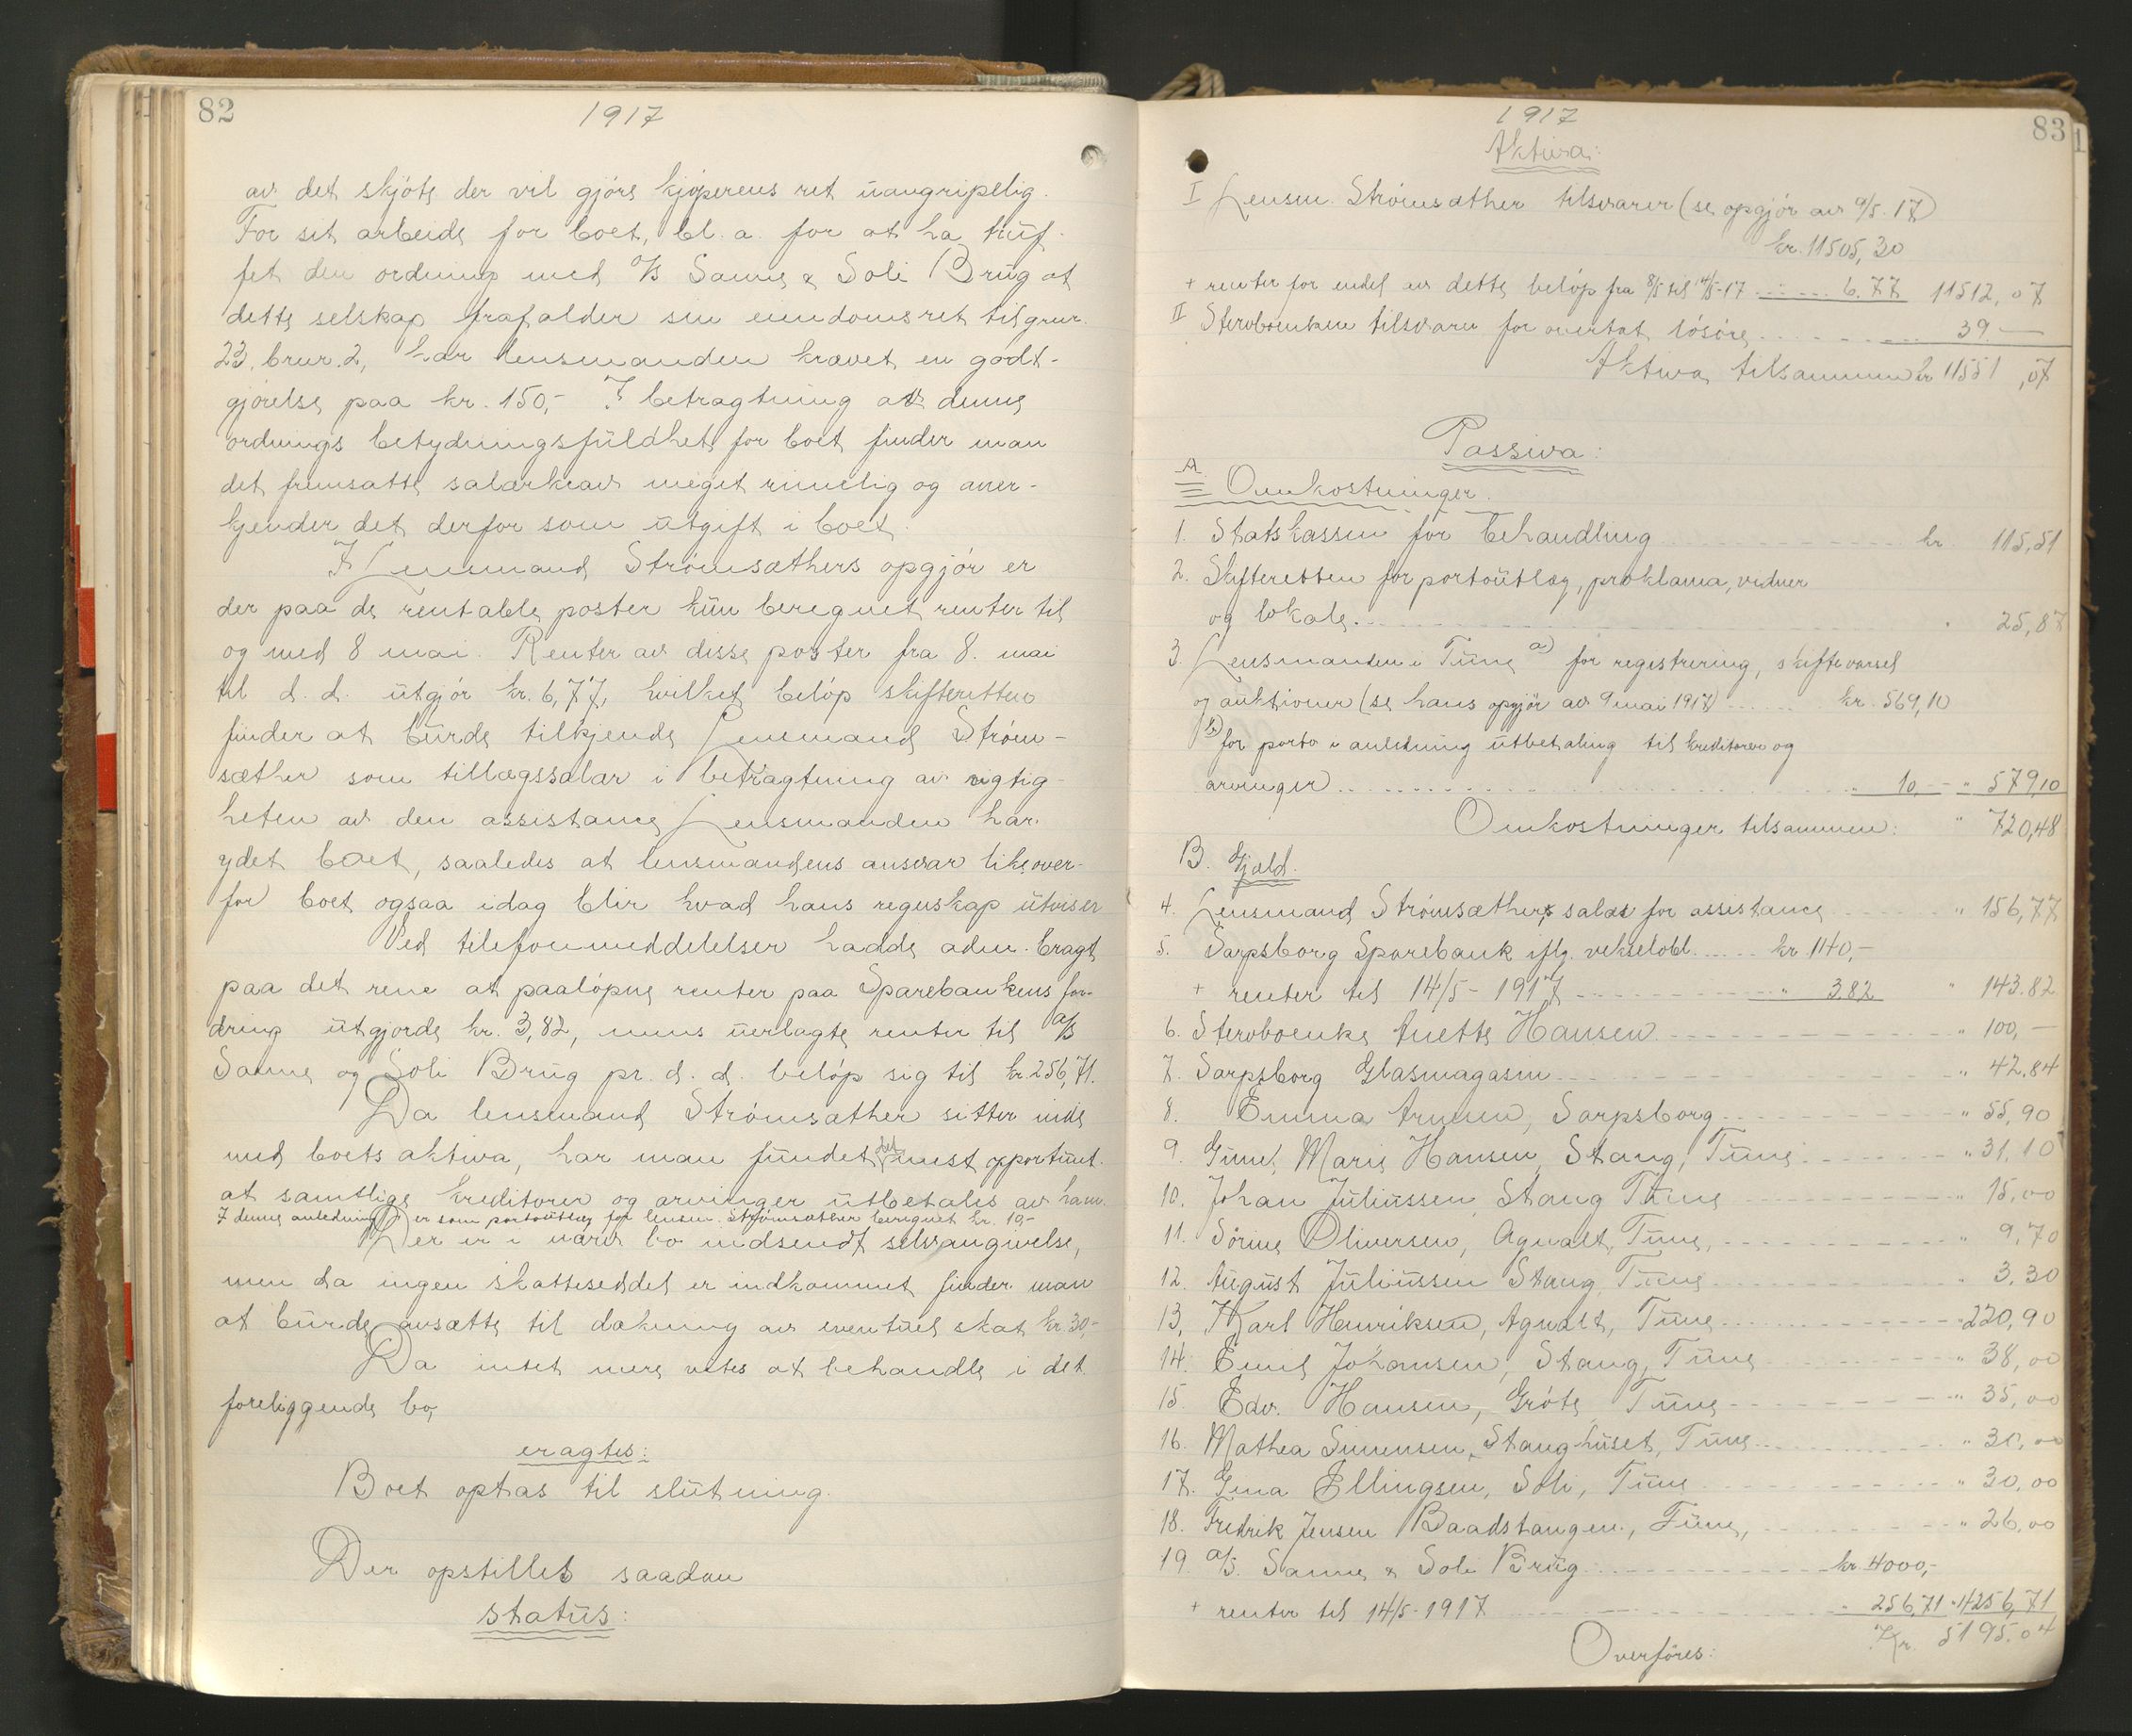 82
1917
av det skjøte der vil gjøre kjøperens ret uangripelig.
For sit arbeide for boet, bl. a. for at ha truf-
fet den ordning med A/S Sanne & Soli Brug at
dette selskap frafalder sin eiendomsret til grnr.
23, brnr. 2, har lensmanden krævet en godt-
gjørelse paa kr. 150,- I betragtning av denne
ordnings betydningsfuldhet for boet finder man
det fremsatte salærkrav meget rimelig og aner-
kjender det derfor som utgift i boet.
I Lensmand Strømsæthers opgjør er
der paa de rentable poster kun beregnet renter til
og med 8 mai. Renter av disse poster fra 8. mai
til d. d. utgjør kr. 6,77, hvilket beløp skifteretten
finder at burde tilkjende Lensmand Strøm-
sæther som tillægssalær i betragtning av vigtig-
heten av den assistance Lensmanden har
ydet boet, saaledes at lensmandens ansvar likeover-
for boet ogsaa idag blir hvad hans regnskap utviser
Ved telefonmeddelelser hadde adm. bragt
paa det rene at paaløpne renter paa Sparebankens for-
dring utgjorde kr. 3,82, mens uerlagte renter til A/S
Sanne og Soli Brug pr. d. d. beløp sig til kr. 256,71.
Da lensmand Strømsæther sitter inde
med boets aktiva, har man fundet det mest opportunt
at samtlige kreditorer og arvinger utbetales av ham.
I denne anledning er som portoutlæg for lensm. Strømsæther beregnet kr. 10,-
Der er i nærv. bo indsendt selvangivelse,
men da ingen skatteseddel er indkommet finder man
at burde avsætte til dækning av eventuel skat kr. 30,-
Da intet mere vites at behandle i det
foreliggende bo,
eragtes:
Boet optas til slutning.
Der opstilles saadan
status:
83
1917
Aktiva:
I Lensm. Strømsæther tilsvarer (se opgjør av 9/5-17)
kr. 11505,30
+ renter for endel av dette beløp fra 8/5 til 14/5-17 6.77 11512,07
II Stervboenken tilsvarer for overtat løsøre 39.—
Aktiva tilsammen kr 11551,07
Passiva:
A
Omkostninger.
1. Statskassen for behandling kr. 115,51
2. Skifteretten for portoutlæg, proklama, vidner
og lokale. " 25,87
3. Lensmanden i Tune a) for registrering, skiftevarsel
og auktioner (se hans opgjør av 9 mai 1917) kr. 569,10
b) for porto i anledning utbetaling til kreditorer og
arvinger " 10,— " 579,10
Omkostninger tilsammen: " 720,48
B. Gjæld.
4. Lensmand Strømsæthers salær for assistance " 156,77
5. Sarpsborg Sparebank iflg. vekselobl. kr. 140,-
+ renter til 14/5-1917 " 3.82 " 143.82
6. Stervboenke Anette Hansen " 100,—
7. Sarpsborg Glasmagasin " 42.84
8. Emma Arnesen, Sarpsborg " 55,90
9. Gunel Marie Hansen, Stang, Tune " 31,10
10. Johan Juliussen, Stang Tune " 15,00
11. Sørine Oliversen, Agnalt, Tune, " 9,70
12. August Juliussen Stang, Tune " 3,30
13, Karl Henriksen, Agnalt, Tune 220,90
14. Emil Johansen, Stang, Tune " 38,00
15. Edv. Hansen, Grøte, Tune " 35,00
16. Mathea Simensen, Stanghuset, Tune " 30,00
17. Gina Ellingsen, Soli, Tune " 30,00
18. Fredrik Jensen Baadstangen, Tune, " 26,00
19 A/S. Sanne & Soli Brug kr. 4000,-
+ renter til 14/5-1917 " 256,71 " 4256,71
Kr. 5195.04
Overføres: